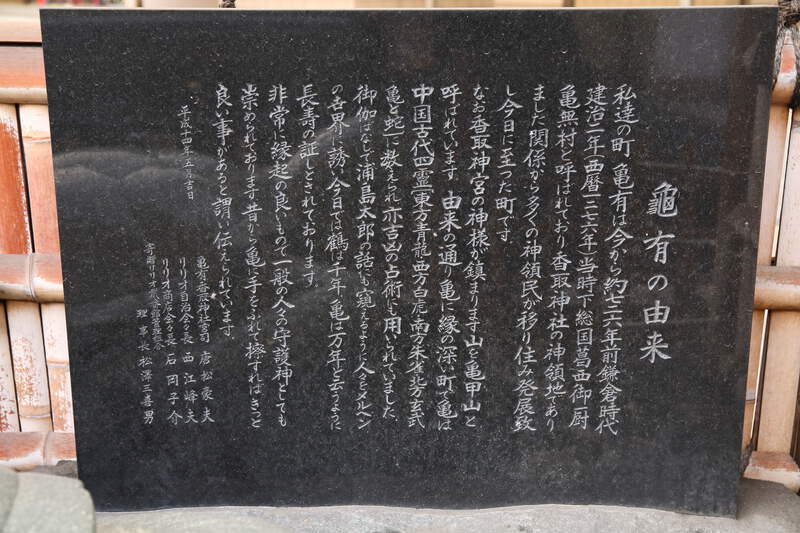 龜有の由来
私達の町、亀有は今から約七二六年前鎌倉時代
建治二年(西暦一二七六年)当時下総国葛西御厨
亀無村と呼ばれており香取神社の神領地であり
ました関係から多くの神領民が移り住み発展致
し今日に至った町です。
なお香取神宮の神様が鎮まります山を亀甲山と
呼ばれています。由来の通り亀に縁の深い町で亀は
中国古代四霊(東方青龍・西方白虎・南方朱雀・北方玄武
亀と蛇)に数えられ亦吉凶の占術にも用いられていました。
御伽ばなしで浦島太郎の話にも
人々をメルヘン
の世界に誘い今日では鶴は千年、亀は万年と云うように
長寿の証しとされております。
非常に縁起の良いもので一般の人々の守護神としても
崇められております。昔から亀に手をふれて擦すればきっと
良い事があると謂い伝えられています。
平成十四年五月吉日
亀有香取神社宮司 唐松範夫
リリオ自治会々長 西江峰夫
リリオ商店会々長 石岡子介
理事長 松澤三喜男